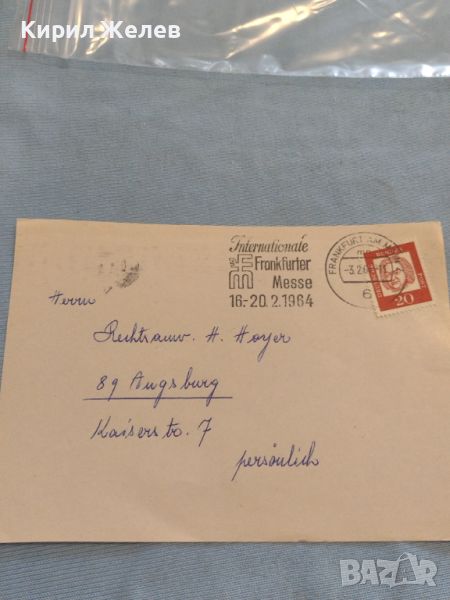 Кирил Желев
Internationale
Frankfurter
Messe
16.-20.2.1964
FRANKFURT AM
-3.2.64
6
20
Herrn
Rechtsanw. H. Hoyer
89 Augsburg
Kaiserstr. 7
persönlich
BAZAR